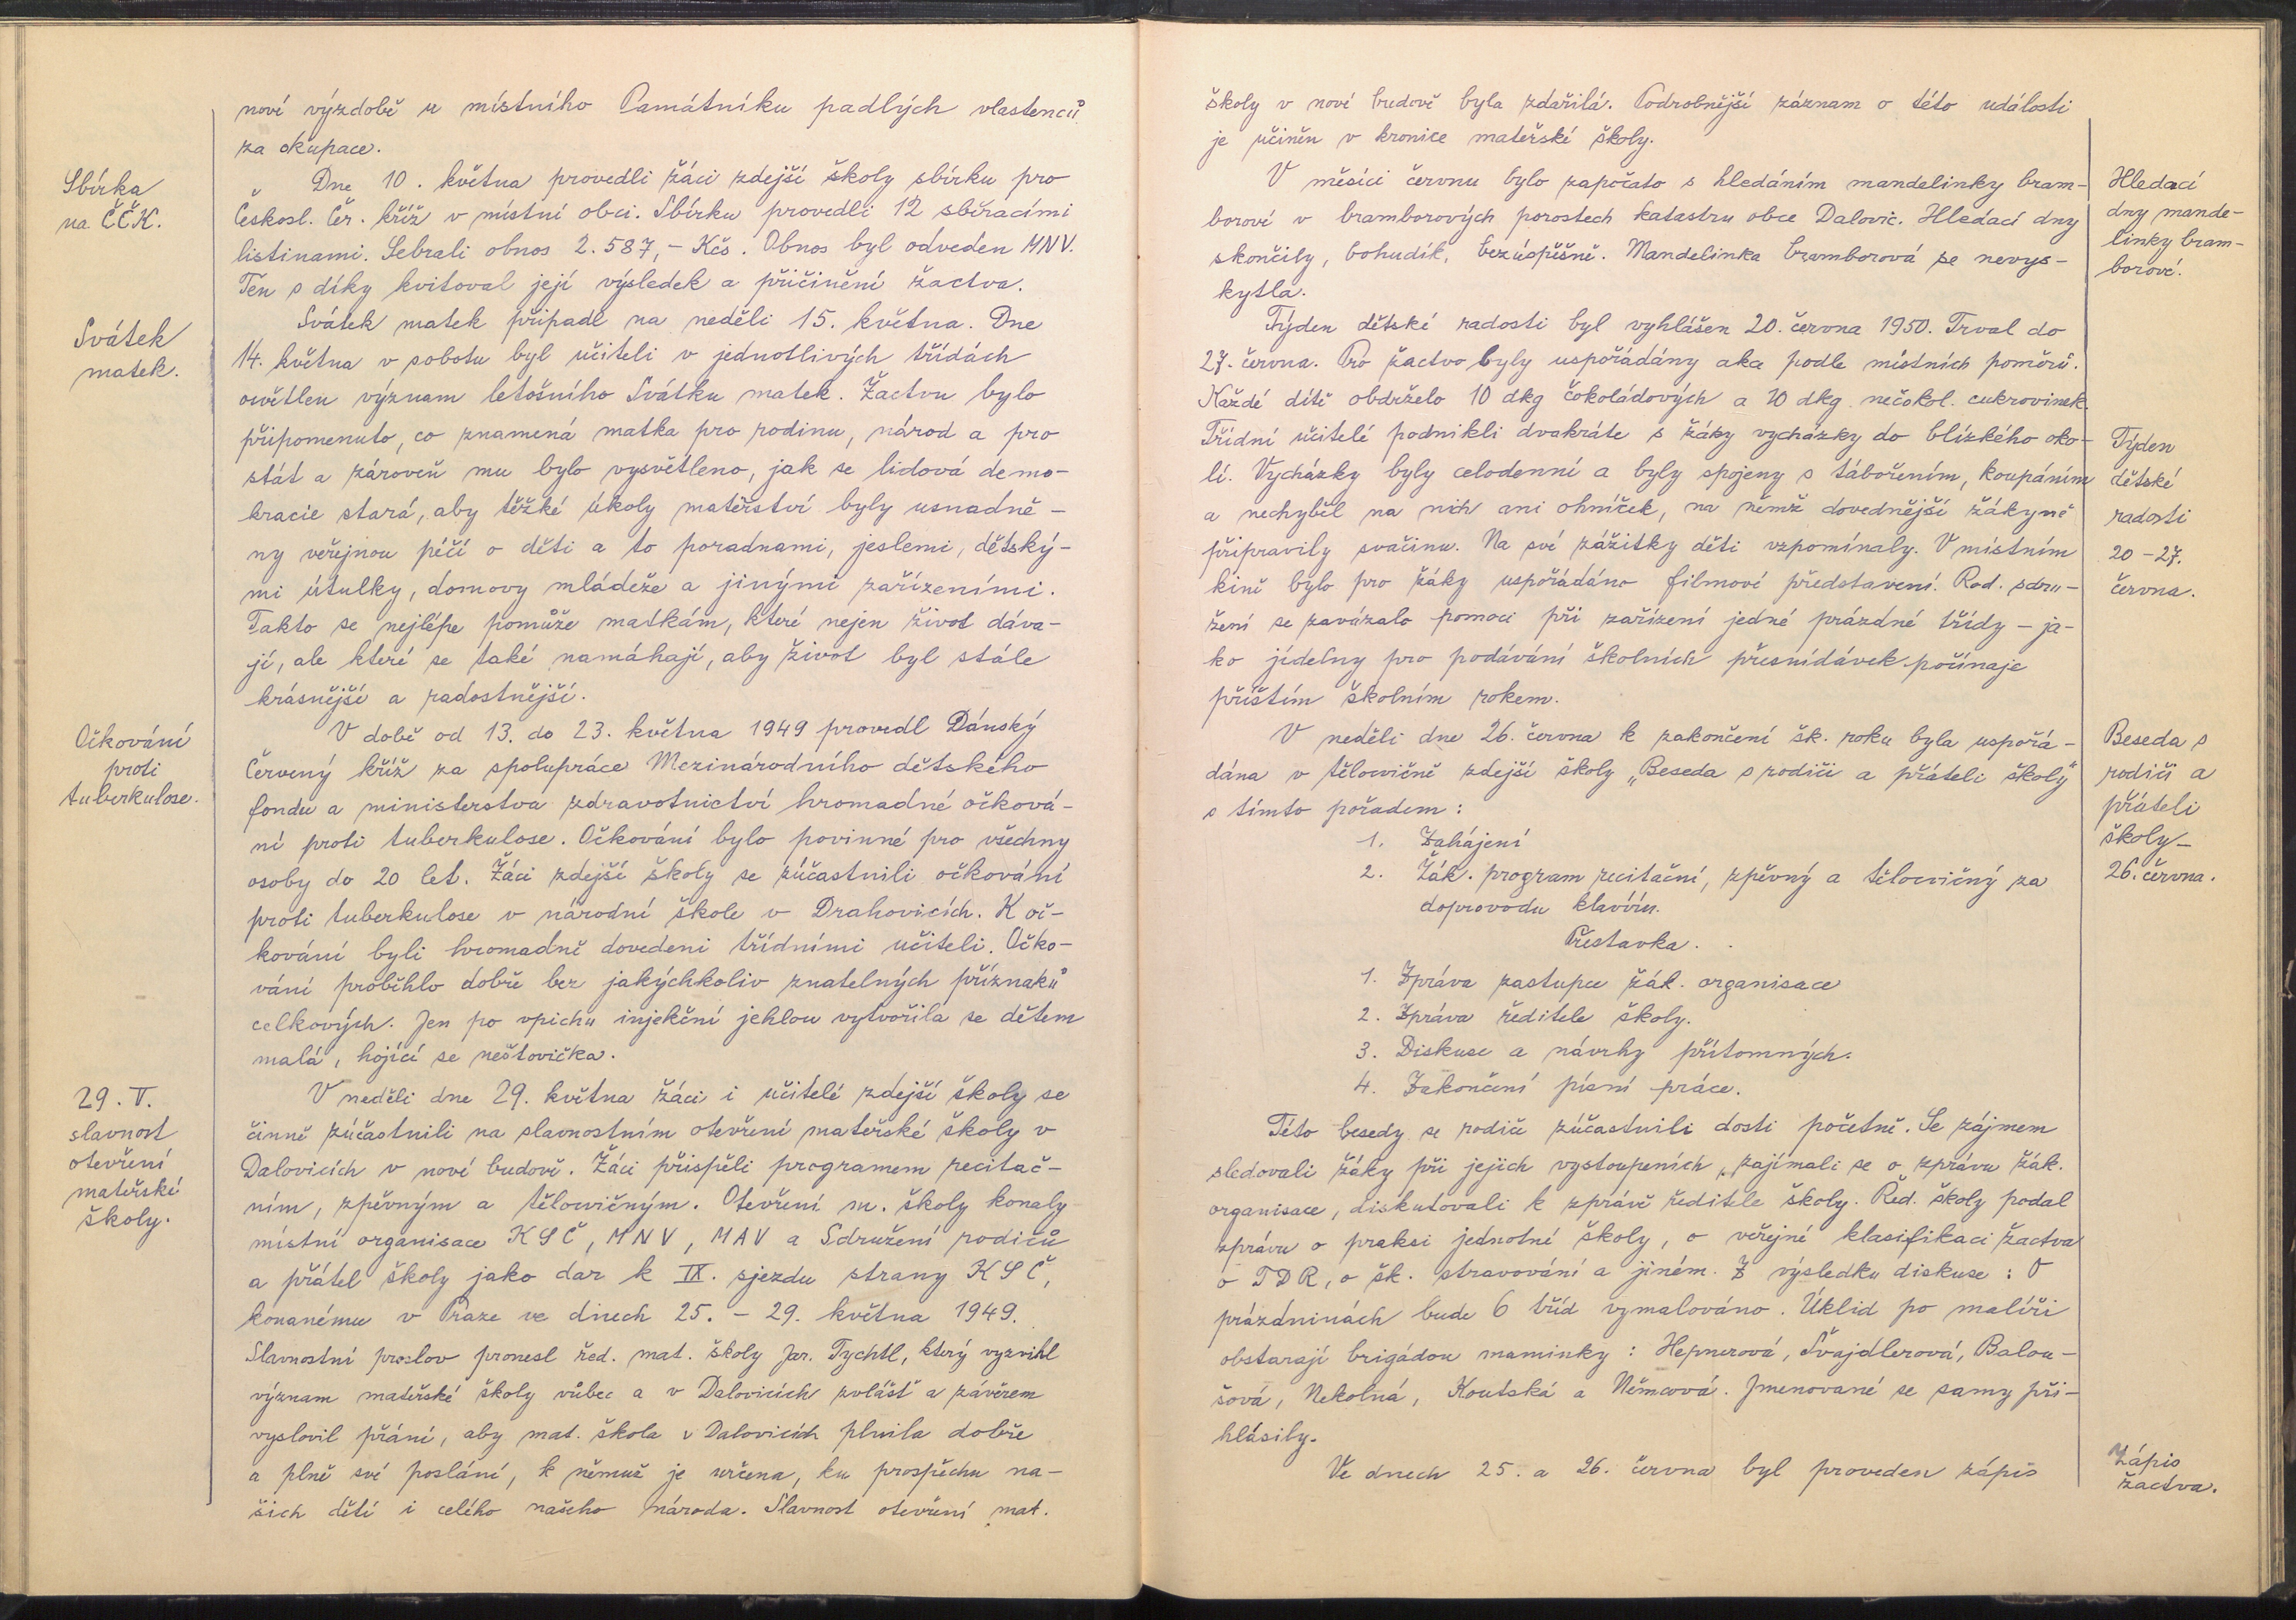 nové výzdobě u místního Památníku padlých vlastenců
za okupace.
Sbírka
na ČČK.
Dne 10. května provedli žáci zdejší školy sbírku pro
Českosl. Čer. kříž v místní obci. Sbírku provedli 12 sběracími
listinami. Sebrali obnos 2.587,- Kčs. Obnos byl odveden MNV.
Ten s díky kvitoval její výsledek a přičinění žactva.
Svátek
matek.
Svátek matek připadl na neděli 15. května. Dne
14. května v sobotu byl učiteli v jednotlivých třídách
osvětlen význam letošního Svátku matek. Žactvu bylo
připomenuto, co znamená matka pro rodinu, národ a pro
stát a zároveň mu bylo vysvětleno, jak se lidová demo-
kracie stará, aby těžké úkoly mateřství byly usnadně-
ny veřejnou péčí o děti a to poradnami, jeslemi, dětský-
mi útulky, domovy mládeže a jinými zařízeními.
Takto se nejlépe pomůže matkám, které nejen život dáva-
jí, ale které se také namáhají, aby život byl stále
krásnější a radostnější.
Očkování
proti
tuberkulose.
V době od 13. do 23. května 1949 provedl Dánský
Červený kříž za spolupráce Mezinárodního dětského
fondu a ministerstva zdravotnictví hromadné očková-
ní proti tuberkulose. Očkování bylo povinné pro všechny
osoby do 20 let. Žáci zdejší školy se zúčastnili očkování
proti tuberkulose v národní škole v Drahovicích. K oč-
kování byli hromadně dovedeni třídními učiteli. Očko-
vání proběhlo dobře bez jakýchkoliv znatelných příznaků
celkových. Jen po vpichu injekční jehlou vytvořila se dětem
malá, hojící se neštovička.
29. V.
slavnost
otevření
mateřské
školy.
V neděli dne 29. května žáci i učitelé zdejší školy se
činně zúčastnili na slavnostním otevření mateřské školy v
Dalovicích v nové budově. Žáci přispěli programem recitač-
ním, zpěvným a tělocvičným. Otevření m. školy konaly
místní organisace KSČ, MNV, MAV a Sdružení rodičů
a přátel školy jako dar k IX. sjezdu strany KSČ,
konanému v Praze ve dnech 25. - 29. května 1949.
Slavnostní proslov pronesl řed. mat. školy Jar. Tychtl, který vyzvihl
význam mateřské školy vůbec a v Dalovicích zvlášť a závěrem
vyslovil přání, aby mat. škola v Dalovicích plnila dobře
a plně své poslání, k němuž je určena, ku prospěchu na-
šich dětí i celého našeho národa. Slavnost otevření mat.
školy v nové budově byla zdařilá. Podrobnější záznam o této události
je učiněn v kronice mateřské školy.
V měsíci červnu bylo započato s hledáním mandelinky bram-
borové v bramborových porostech katastru obce Dalovic. Hledací dny
skončily, bohudík, bezúspěšně. Mandelinka bramborová se nevys-
kytla.
Hledací
dny mande-
linky bram-
borové.
Týden dětské radosti byl vyhlášen 20. června 1950. Trval do
27. června. Pro žactvo byly uspořádány akce podle místních poměrů.
Každé dítě obdrželo 10 dkg čokoládových a 10 dkg nečokol. cukrovinek.
Třídní učitelé podnikli dvakráte s žáky vycházky do blízkého oko-
lí. Vycházky byly celodenní a byly spojeny s tábořením, koupáním
a nechyběl na nich ani ohníček, na němž dovednější žákyně
připravily svačinu. Na své zážitky děti vzpomínaly. V místním
kině bylo pro žáky uspořádáno filmové představení. Rod. sdru-
žení se zavázalo pomoci při zařízení jedné prázdné třídy - ja-
ko jídelny pro podávání školních přesnídávek počínaje
příštím školním rokem.
Týden
dětské
radosti
20 - 27.
června.
V neděli dne 26. června k zakončení šk. roku byla uspořá-
dána v tělocvičně zdejší školy „Beseda s rodiči a přáteli školy"
s tímto pořadem:
Beseda s
rodiči a
přáteli
školy -
26. června.
1. Zahájení
2. Žák. program recitační, zpěvný a tělocvičný za
doprovodu klavíru.
Přestávka.
1. Zpráva zástupce žák. organisace
2. Zpráva ředitele školy.
3. Diskuse a návrhy přítomných.
4. Zakončení písní práce.
Této besedy se rodiče zúčastnili dosti početně. Se zájmem
sledovali žáky při jejich vystoupeních, zajímali se o zprávu žák.
organisace, diskutovali k zprávě ředitele školy. Řed. školy podal
zprávu o praksi jednotné školy, o veřejné klasifikaci žactva
o TDR, o šk. stravování a jiném. Z výsledku diskuse: O
prázdninách bude 6 tříd vymalováno. Úklid po malíři
obstarají brigádou maminky: Hepnerová, Švajdlerová, Balou-
šová, Nekolná, Koutská a Němcová. Jmenované se samy při-
hlásily.
Ve dnech 25. a 26. června byl proveden zápis
Zápis
žactva.